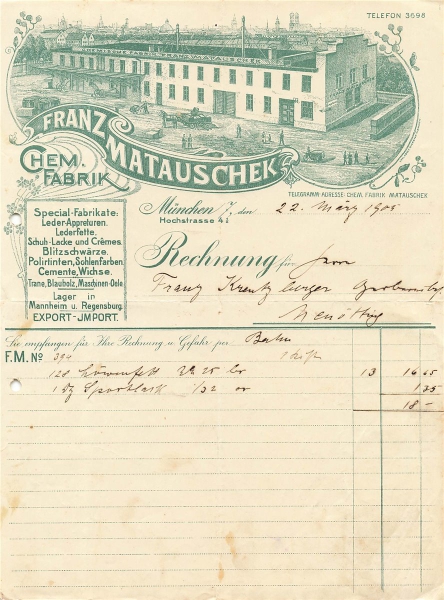 TELEFON 3698
CHEMISCHE FABRIK FRANZ MATAUSCHEK
FRANZ
MATAUSCHEK
CHEM.
FABRIK
TELEGRAMM-ADRESSE: CHEM. FABRIK MATAUSCHEK
München 7, den 22. März 1905
Hochstrasse 4
Special-Fabrikate:
Leder-Appreturen.
Lederfette.
Schuh-Lacke und Crêmes.
Blitzschwärze.
Polirtinten, Sohlenfarben.
Cemente, Wichse.
Trane, Blauholz, Maschinen-Oele
Lager in
Mannheim u. Regensburg.
EXPORT-JMPORT.
Rechnung für Herrn
Franz
Neuötting
Sie empfingen für Ihre Rechnung u. Gefahr per Bahn
F.M. No 394 1 Kiste
128 Löwenfett 13 16 65
1 Sportlack 1/32 1 35
18 -